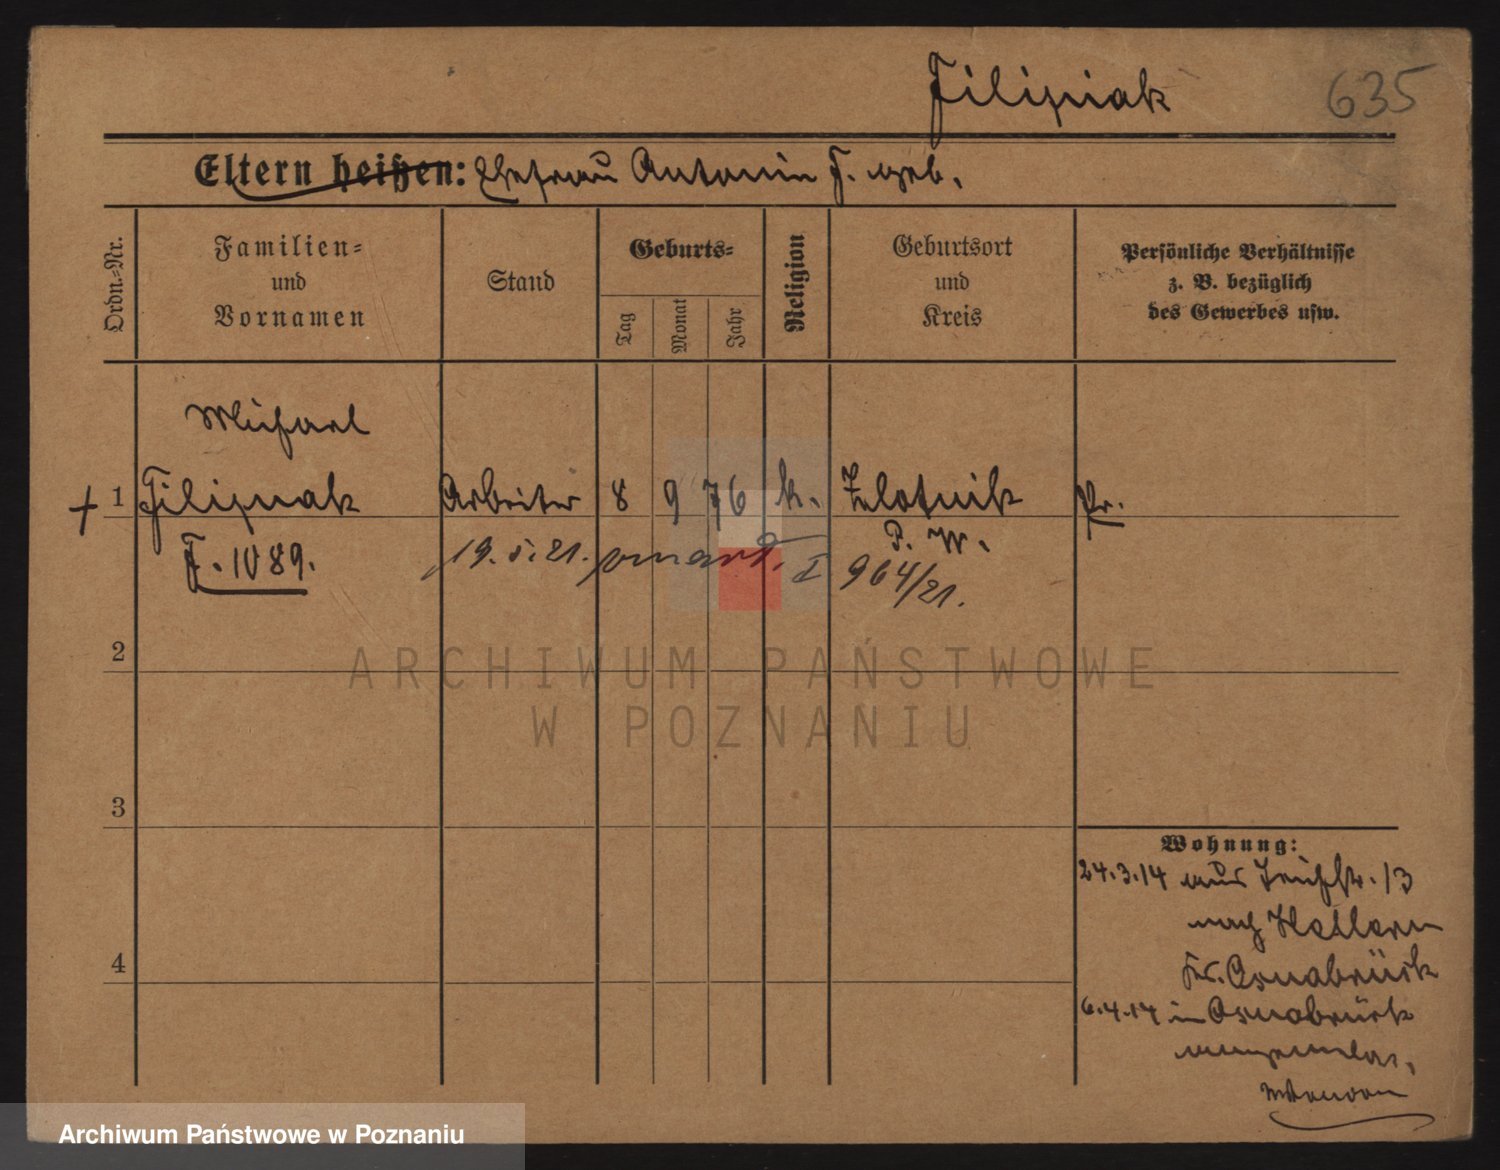 Filipiak 635
Eltern heißen: Ehefrau Antonin F. geb.
Ordn.=Nr.
Familien=
und
Vornamen
Stand
Geburts=
Tag
Monat
Jahr
Religion
Geburtsort
und
Kreis
Persönliche Verhältnisse
z. B. bezüglich
des Gewerbes usw.
Michael
+ 1 Filipiak Arbeiter 8 9 76 k. Zlotnik Pr.
F. 1089. P. W.
19.5.21. I 964/21.
2
ARCHIWUM PAŃSTWOWE
W POZNANIU
3
Wohnung:
24.3.14 aus Teichstr. 13
nach Hellern
Kr. Osnabrück
4
6.4.14 in Osnabrück
Archiwum Państwowe w Poznaniu